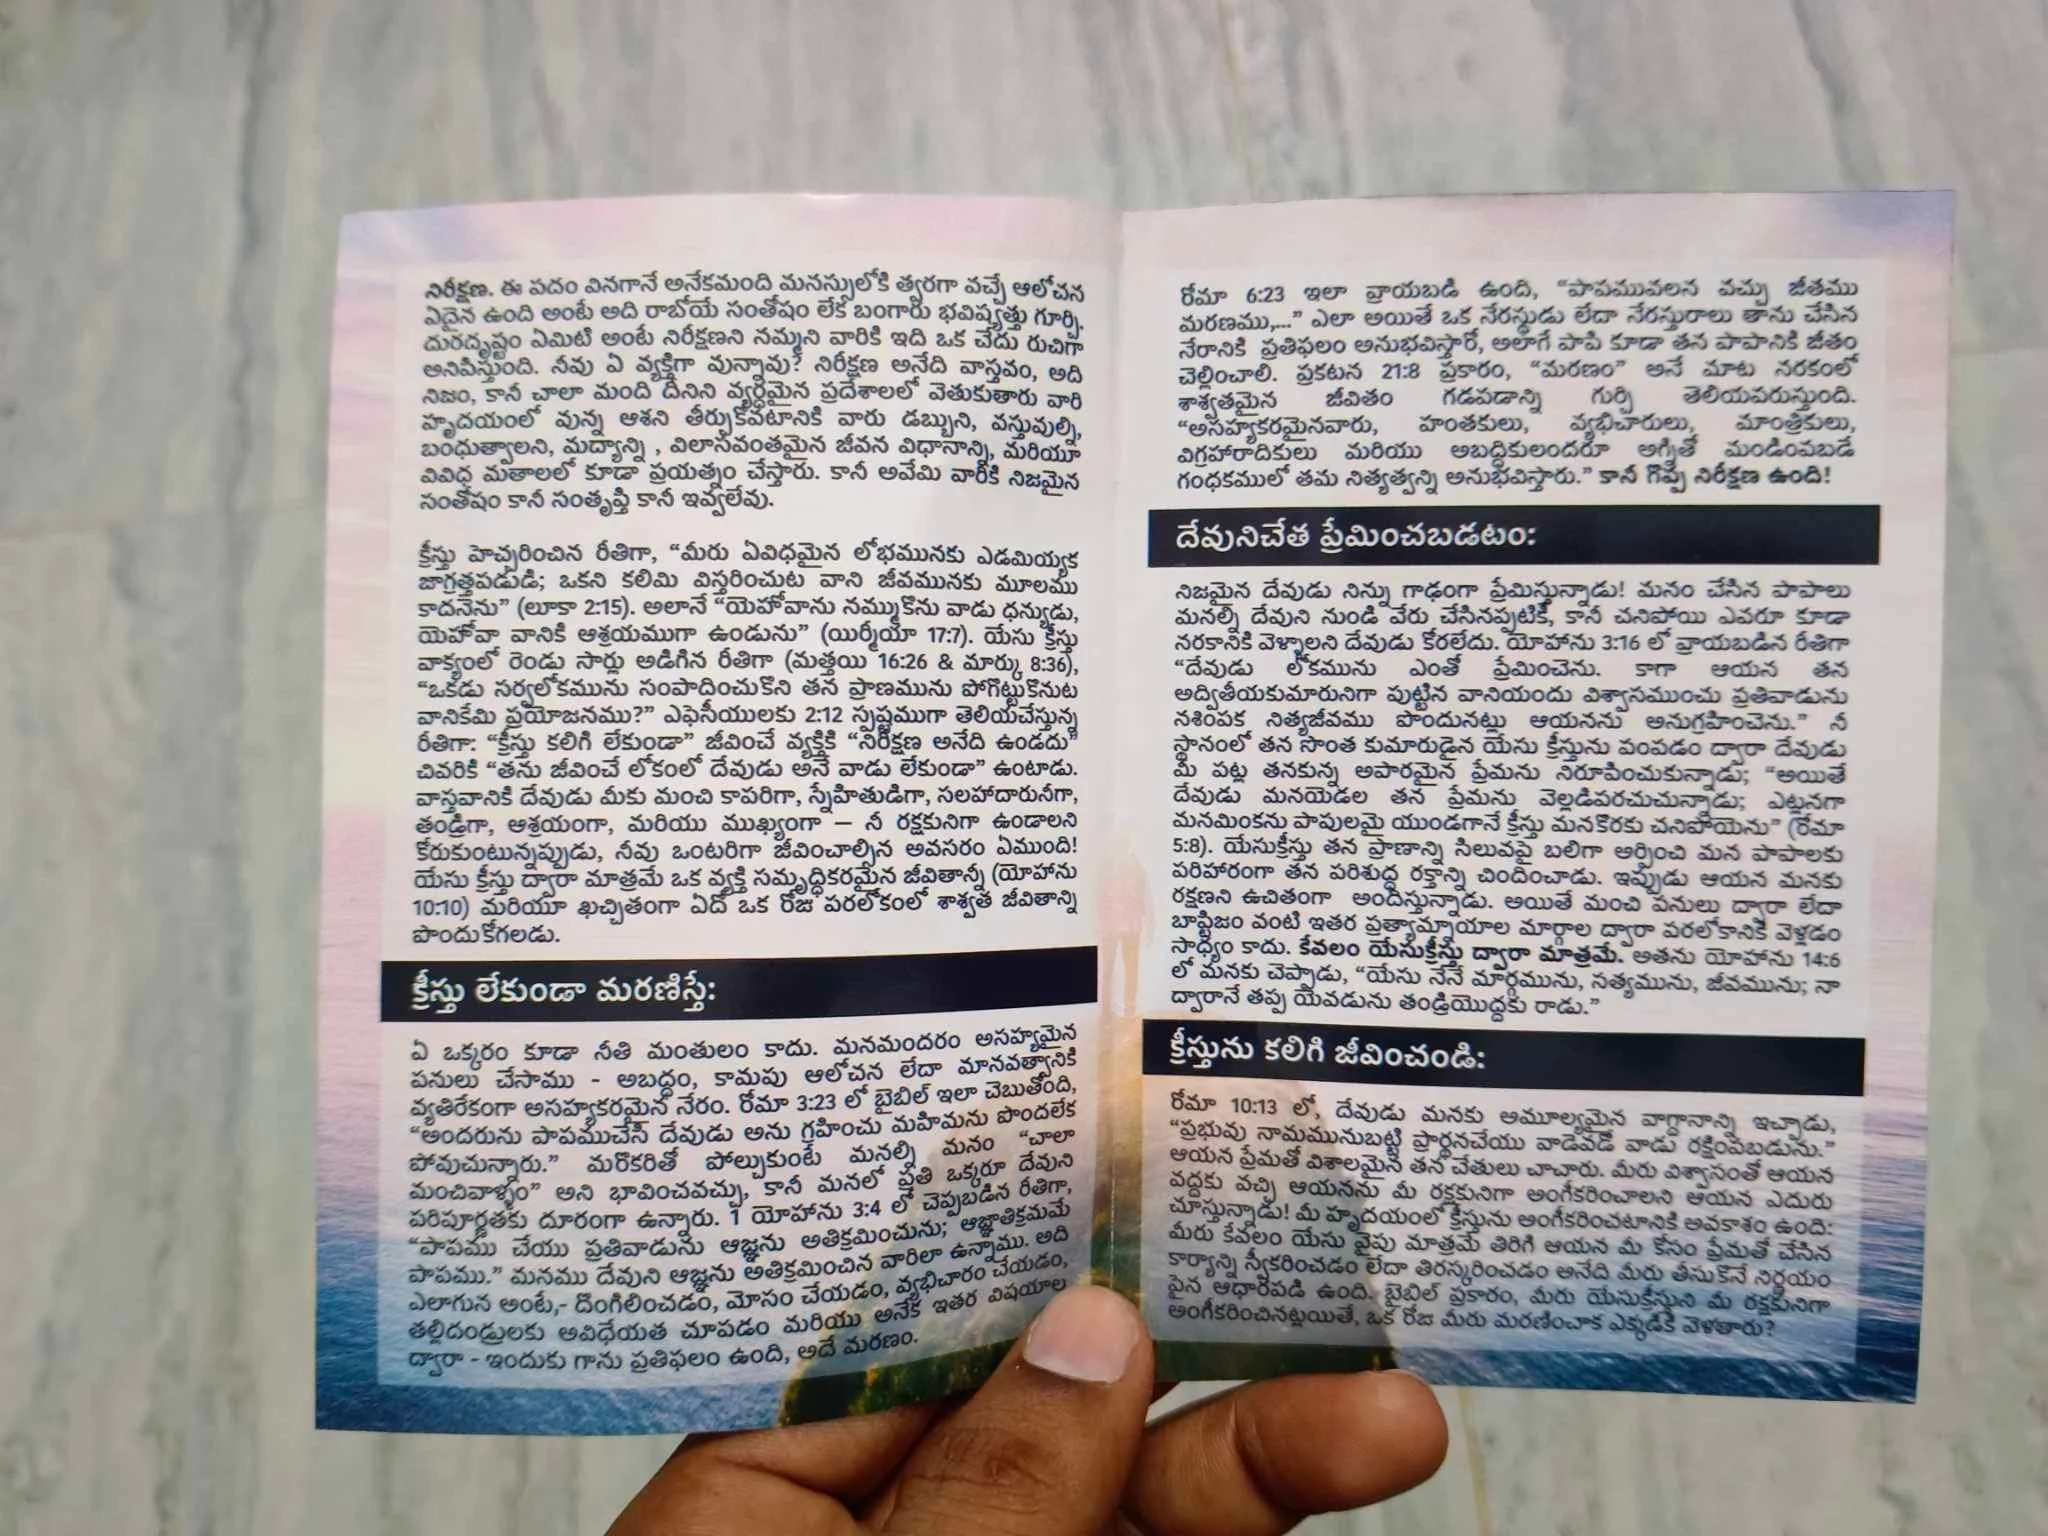 నిరీక్షణ. ఈ పదం వినగానే అనేకమంది మనస్సులోకి త్వరగా వచ్చే ఆలోచన
ఏదైన ఉంది అంటే అది రాబోయే సంతోషం లేక బంగారు భవిష్యత్తు గూర్చి.
దురదృష్టం ఏమిటి అంటే నిరీక్షణని నమ్మని వారికి ఇది ఒక చేదు రుచిగా
అనిపిస్తుంది. నీవు ఏ వ్యక్తిగా వున్నావు? నిరీక్షణ అనేది వాస్తవం, అది
నిజం, కానీ చాలా మంది దీనిని వ్యర్థమైన ప్రదేశాలలో వెతుకుతారు వారి
హృదయంలో వున్న ఆశని తీర్చుకోవటానికి వారు డబ్బుని, వస్తువుల్ని,
బంధుత్వాలని, మద్యాన్ని , విలాసవంతమైన జీవన విధానాన్ని, మరియూ
వివిధ మతాలలో కూడా ప్రయత్నం చేస్తారు. కానీ అవేమి వారికి నిజమైన
సంతోషం కానీ సంతృప్తి కానీ ఇవ్వలేవు.
క్రీస్తు హెచ్చరించిన రీతిగా, “మీరు ఏవిధమైన లోభమునకు ఎడమియ్యక
జాగ్రత్తపడుడి; ఒకని కలిమి విస్తరించుట వాని జీవమునకు మూలము
కాదనెను” (లూకా 2:15). అలానే “యెహోవాను నమ్ముకొను వాడు ధన్యుడు,
యెహోవా వానికి ఆశ్రయముగా ఉండును” (యిర్మీయా 17:7). యేసు క్రీస్తు
వాక్యంలో రెండు సార్లు అడిగిన రీతిగా (మత్తయి 16:26 & మార్కు 8:36),
“ఒకడు సర్వలోకమును సంపాదించుకొని తన ప్రాణమును పోగొట్టుకొనుట
వానికేమి ప్రయోజనము?” ఎఫెసీయులకు 2:12 స్పష్టముగా తెలియచేస్తున్న
రీతిగా: “క్రీస్తు కలిగి లేకుండా” జీవించే వ్యక్తికి “నిరీక్షణ అనేది ఉండదు”
చివరికి “తను జీవించే లోకంలో దేవుడు అనే వాడు లేకుండా” ఉంటాడు.
వాస్తవానికి దేవుడు మీకు మంచి కాపరిగా, స్నేహితుడిగా, సలహాదారునీగా,
తండ్రిగా, ఆశ్రయంగా, మరియు ముఖ్యంగా – నీ రక్షకునిగా ఉండాలని
కోరుకుంటున్నప్పుడు, నీవు ఒంటరిగా జీవించాల్సిన అవసరం ఏముంది!
యేసు క్రీస్తు ద్వారా మాత్రమే ఒక వ్యక్తి సమృద్ధికరమైన జీవితాన్నీ (యోహాను
10:10) మరియూ ఖచ్చితంగా ఏదో ఒక రోజు పరలోకంలో శాశ్వత జీవితాన్ని
పొందుకోగలడు.
క్రీస్తు లేకుండా మరణిస్తే:
ఏ ఒక్కరం కూడా నీతి మంతులం కాదు. మనమందరం అసహ్యమైన
పనులు చేసాము - అబద్ధం, కామపు ఆలోచన లేదా మానవత్వానికి
వ్యతిరేకంగా అసహ్యకరమైన నేరం. రోమా 3:23 లో బైబిల్ ఇలా చెబుతోంది,
“అందరును పాపముచేసి దేవుడు అను గ్రహించు మహిమను పొందలేక
పోవుచున్నారు.” మరొకరితో పోల్చుకుంటే మనల్ని మనం “చాలా
మంచివాళ్ళం” అని భావించవచ్చు, కానీ మనలో ప్రతి ఒక్కరూ దేవుని
పరిపూర్ణతకు దూరంగా ఉన్నారు. 1 యోహాను 3:4 లో చెప్పబడిన రీతిగా,
“పాపము చేయు ప్రతివాడును ఆజ్ఞను అతిక్రమించును; ఆజ్ఞాతిక్రమమే
పాపము.” మనము దేవుని ఆజ్ఞను అతిక్రమించిన వారిలా ఉన్నాము. అది
ఎలాగున అంటే,- దొంగిలించడం, మోసం చేయడం, వ్యభిచారం చేయడం,
తల్లిదండ్రులకు అవిధేయత చూపడం మరియు అనేక ఇతర విషయాల
ద్వారా - ఇందుకు గాను ప్రతిఫలం ఉంది, అదే మరణం.
రోమా 6:23 ఇలా వ్రాయబడి ఉంది, “పాపమువలన వచ్చు జీతము
మరణము,...” ఎలా అయితే ఒక నేరస్థుడు లేదా నేరస్తురాలు తాను చేసిన
నేరానికి ప్రతిఫలం అనుభవిస్తారో, అలాగే పాపి కూడా తన పాపానికి జీతం
చెల్లించాలి. ప్రకటన 21:8 ప్రకారం, “మరణం” అనే మాట నరకంలో
శాశ్వతమైన జీవితం గడపడాన్ని గుర్చి తెలియపరుస్తుంది.
“అసహ్యకరమైనవారు, హంతకులు, వ్యభిచారులు, మాంత్రికులు,
విగ్రహారాదికులు మరియు అబద్ధికులందరూ అగ్నితో మండింపబడే
గంధకములో తమ నిత్యత్వన్ని అనుభవిస్తారు.” కానీ గొప్ప నిరీక్షణ ఉంది!
దేవునిచేత ప్రేమించబడటం:
నిజమైన దేవుడు నిన్ను గాఢంగా ప్రేమిస్తున్నాడు! మనం చేసిన పాపాలు
మనల్ని దేవుని నుండి వేరు చేసినప్పటికీ, కానీ చనిపోయి ఎవరూ కూడా
నరకానికి వెళ్ళాలని దేవుడు కోరలేదు. యోహాను 3:16 లో వ్రాయబడిన రీతిగా
“దేవుడు లోకమును ఎంతో ప్రేమించెను. కాగా ఆయన తన
అద్వితీయకుమారునిగా పుట్టిన వానియందు విశ్వాసముంచు ప్రతివాడును
నశింపక నిత్యజీవము పొందునట్లు ఆయనను అనుగ్రహించెను.” నీ
స్థానంలో తన సొంత కుమారుడైన యేసు క్రీస్తును పంపడం ద్వారా దేవుడు
మీ పట్ల తనకున్న అపారమైన ప్రేమను నిరూపించుకున్నాడు; “అయితే
దేవుడు మనయెడల తన ప్రేమను వెల్లడిపరచుచున్నాడు; ఎట్లనగా
మనమింకను పాపులమై యుండగానే క్రీస్తు మనకొరకు చనిపోయెను” (రోమా
5:8). యేసుక్రీస్తు తన ప్రాణాన్ని సిలువపై బలిగా అర్పించి మన పాపాలకు
పరిహారంగా తన పరిశుద్ధ రక్తాన్ని చిందించాడు. ఇప్పుడు ఆయన మనకు
రక్షణని ఉచితంగా అందిస్తున్నాడు. అయితే మంచి పనులు ద్వారా లేదా
బాప్టిజం వంటి ఇతర ప్రత్యామ్నాయాల మార్గాల ద్వారా పరలోకానికి వెళ్లడం
సాధ్యం కాదు. కేవలం యేసుక్రీస్తు ద్వారా మాత్రమే. అతను యోహాను 14:6
లో మనకు చెప్పాడు, “యేసు నేనే మార్గమును, సత్యమును, జీవమును; నా
ద్వారానే తప్ప యెవడును తండ్రియొద్దకు రాడు.”
క్రీస్తును కలిగి జీవించండి:
రోమా 10:13 లో, దేవుడు మనకు అమూల్యమైన వాగ్దానాన్ని ఇచ్చాడు,
“ప్రభువు నామమునుబట్టి ప్రార్థనచేయు వాడెవడో వాడు రక్షింపబడును.”
ఆయన ప్రేమతో విశాలమైన తన చేతులు చాచారు. మీరు విశ్వాసంతో ఆయన
వద్దకు వచ్చి ఆయనను మీ రక్షకునిగా అంగీకరించాలని ఆయన ఎదురు
చూస్తున్నాడు! మీ హృదయంలో క్రీస్తును అంగీకరించటానికి అవకాశం ఉంది:
మీరు కేవలం యేసు వైపు మాత్రమే తిరిగి ఆయన మీ కోసం ప్రేమతో చేసిన
కార్యాన్ని స్వీకరించడం లేదా తిరస్కరించడం అనేది మీరు తీసుకొనే నిర్ణయం
పైన ఆధారపడి ఉంది. బైబిల్ ప్రకారం, మీరు యేసుక్రీస్తుని మీ రక్షకునిగా
అంగీకరించినట్లయితే, ఒక రోజు మీరు మరణించాక ఎక్కడికి వెళతారు?